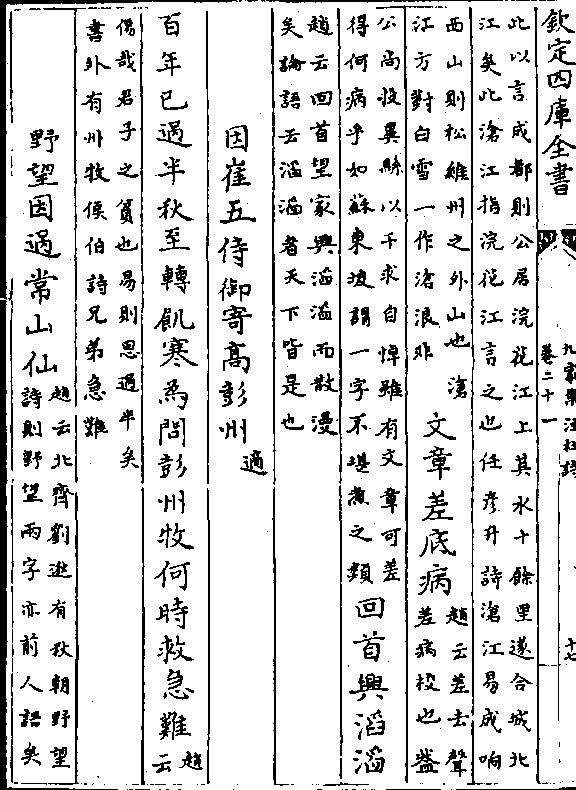 欽定四庫全書
九家集注杜詩
卷二十一
十七
此以言成都則公居浣花江上其水十餘里遂合城北
江矣此滄江指浣花江言之也任彦升詩滄江易成响
西山則松維州之外山也滄
江方對白雪一作滄浪非
文章差底病
趙云差去聲
差病校也盖
公尚收 以干求自悼雖有文章可差
得何病乎如蘇東坡謂一字不堪煮之類
回首興滔滔
趙云回首望家興滔滔而散漫
矣論語云滔滔者天下皆是也
因崔五侍御寄高彭州
適
百年已過半秋至轉飢寒為問彭州牧何時救急難
趙
云
傷哉君子之貧也易則思過半矣
書外有州牧侯伯詩兄弟急難
野望因過常山仙
趙云北齊劉逖有秋朝野望
詩則野望兩字亦前人語矣